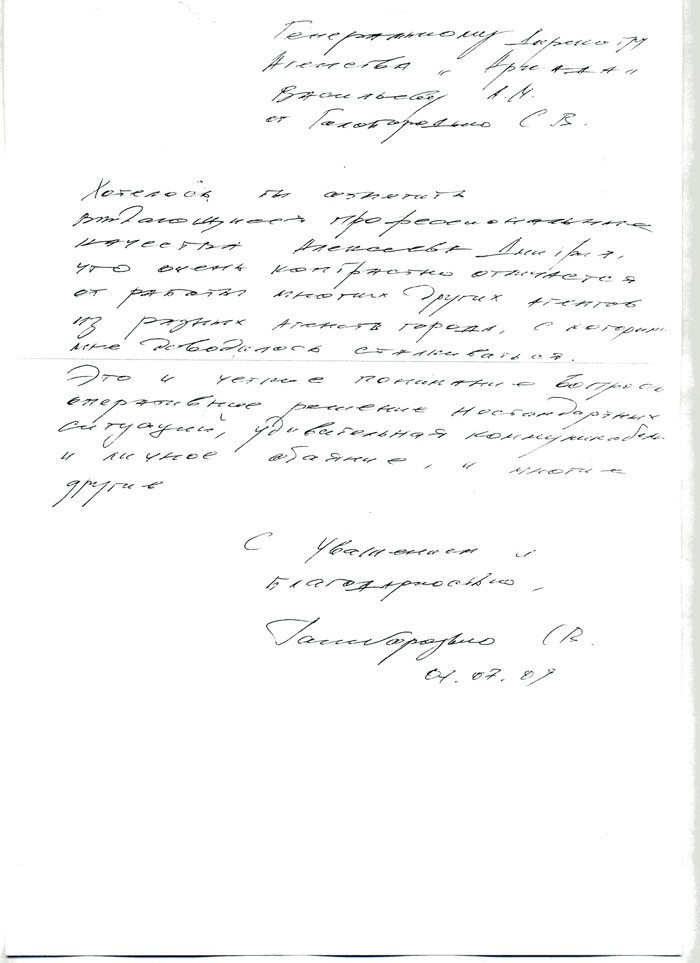 Генеральному Директору
Агенства „Ариада"
Васильеву А.М.
от Голобородько С В.
Хотелось бы отметить
выдающиеся профессиональные
качества Алексеева Дмитрия,
что очень контрастно отличается
от работы многих других агентов
из разных агенств города, с которыми
мне доводилось сталкиваться.
Это и четкое понимание вопроса
оперативное решение нестандартных
ситуаций, удивительная
и личное обаяние, и многие
другие
С уважением и
благодарностью,
Голобородько С В.
01.07.09